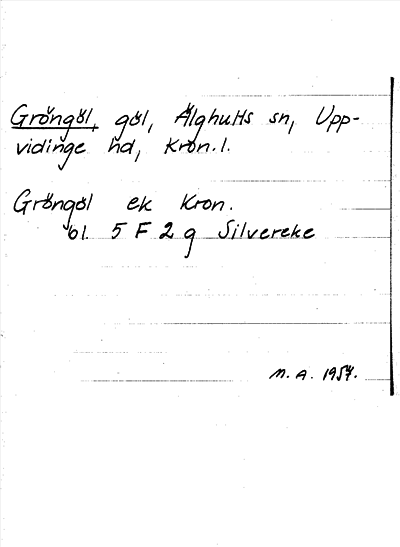 Gröngöl, göl, Älghults sn, Upp-
vidinge hd, Kron.l.
Gröngöl ek Kron.
bl. 5 F 2 g Silvereke
M.A. 1957.